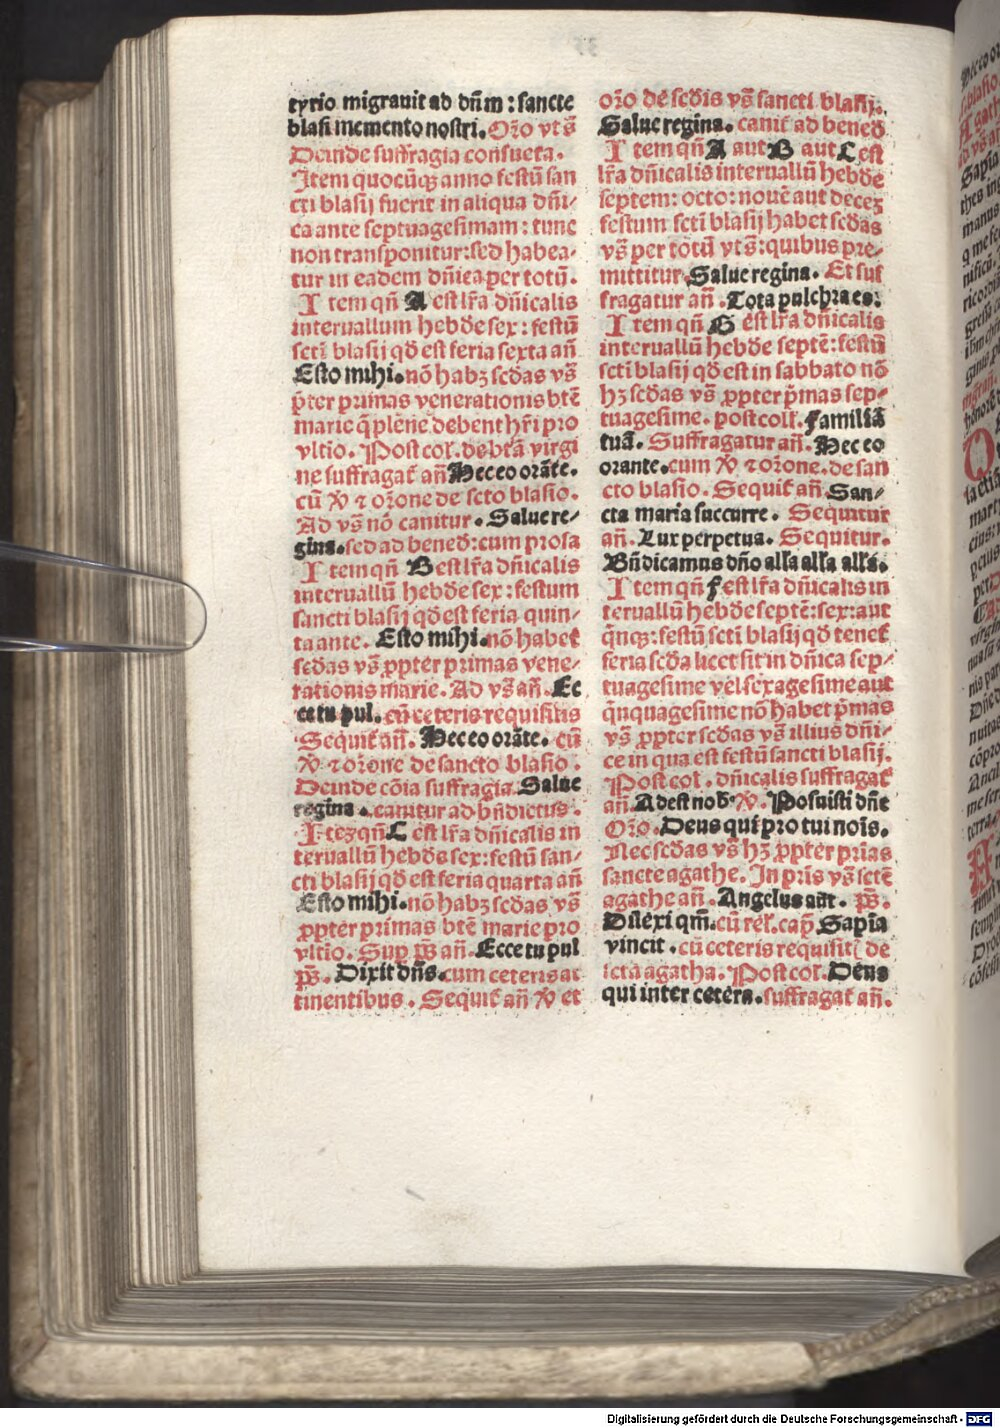 tyrio migrauit ad dñm : sancte
blasi memento nostri. Orõ vts̃
Deinde suffragia consueta.
Item quocũqꝫ anno festũ san
cti blasij fuerit in aliqua dñi/
ca ante septuagesimam : tunc
non transponitur: sed habea
tur in eadem dñica per totũ.
Item qñ A est lr̃a dñicalis
interuallum hebde sex : festũ
scti blasij qd̃ est feria sexta añ
Esto mihi. nõ habꝫ scd̃as vs̃
p̃ter primas venerationis btẽ
marie q̃ plẽne debent hr̃i pro
vltio. Post col. de btã virgi
ne suffragat᷑ añ Hec eo orãte.
cũ ℣ ⁊ orõne de scto blasio.
Ad vs̃ nõ canitur. Salue re/
gina. sed ad bened̃: cum prosa
Item qñ B est lr̃a dñicalis
interuallũ hebde sex : festum
sancti blasij qd̃ est feria quin/
ta ante. Esto mihi. nõ habet
scd̃as vs̃ ꝓpter primas vene/
rationis marie. Ad vs̃ añ. Ec
ce tu pul. cũ ceteris requisitis
Sequit᷑ añ. Hec eo orãte. cũ
℣ ⁊ orõne de sancto blasio.
Deinde cõia suffragia. Salue
regina. canitur ad bñdictus.
Iteꝫ qñ C est lr̃a dñicalis in
teruallũ hebde sex: festũ san/
cti blasij qd̃ est feria quarta añ
Esto mihi. nõ habꝫ scd̃as vs̃
ꝓpter primas btẽ marie pro
vltio. Sup ps̃ añ. Ecce tu pul
ps̃. Dixit dñs. cum ceteris at
tinentibus. Sequit᷑ añ ℣ et
orõ de scd̃is vs̃ sancti blasij.
Salue regina. canit᷑ ad bened̃
Item qñ A aut B aut C est
lr̃a dñicalis interuallũ hebde
septem: octo: nouẽ aut deceꝫ
festum scti blasij habet scd̃as
vs̃ per totũ vts̃: quibus pre/
mittitur Salue regina. Et suf
fragatur añ. Tota pulchra es.
Item qñ G est lr̃a dñicalis
interuallũ hebde septẽ: festũ
scti blasij qd̃ est in sabbato nõ
hꝫ scd̃as vs̃ ꝓpter p̃mas sep/
tuagesime. post coll. Familiã
tuã. Suffragatur añ. Hec eo
orante. cum ℣ ⁊ orõne. de san
cto blasio. Sequit᷑ añ. San/
cta maria succurre. Sequitur
añ. Lux perpetua. Sequitur.
Bñdicamus dño alľa alľa alľa.
Item qñ F est lr̃a dñicalis in
teruallũ hebde septẽ: sex: aut
q̃nqꝫ: festũ scti blasij qd̃ tenet
feria scd̃a licet sit in dñica sep/
tuagesime vel sexagesime aut
q̃nquagesime nõ habet p̃mas
vs̃ ꝓpter scd̃as vs̃ illius dñi/
ce in qua est festũ sancti blasij.
Post col. dñicalis suffragat᷑
añ. Adest nob̃. ℣. Posuisti dñe
Orõ. Deus qui pro tui nois̃.
Nec scd̃as vs̃ hꝫ ꝓpter prĩas
sancte agathe. In prĩs vs̃ sctẽ
agathe añ. Angelus aũt. ps̃.
Dilexi qm̃. cũ rel. cap̃. Sapĩa
vincit. cũ ceteris requisit̃ de
scta agatha. Post col. Deus
qui inter cetera. suffragat᷑ añ.
Digitalisierung gefördert durch die Deutsche Forschungsgemeinschaft - DFG